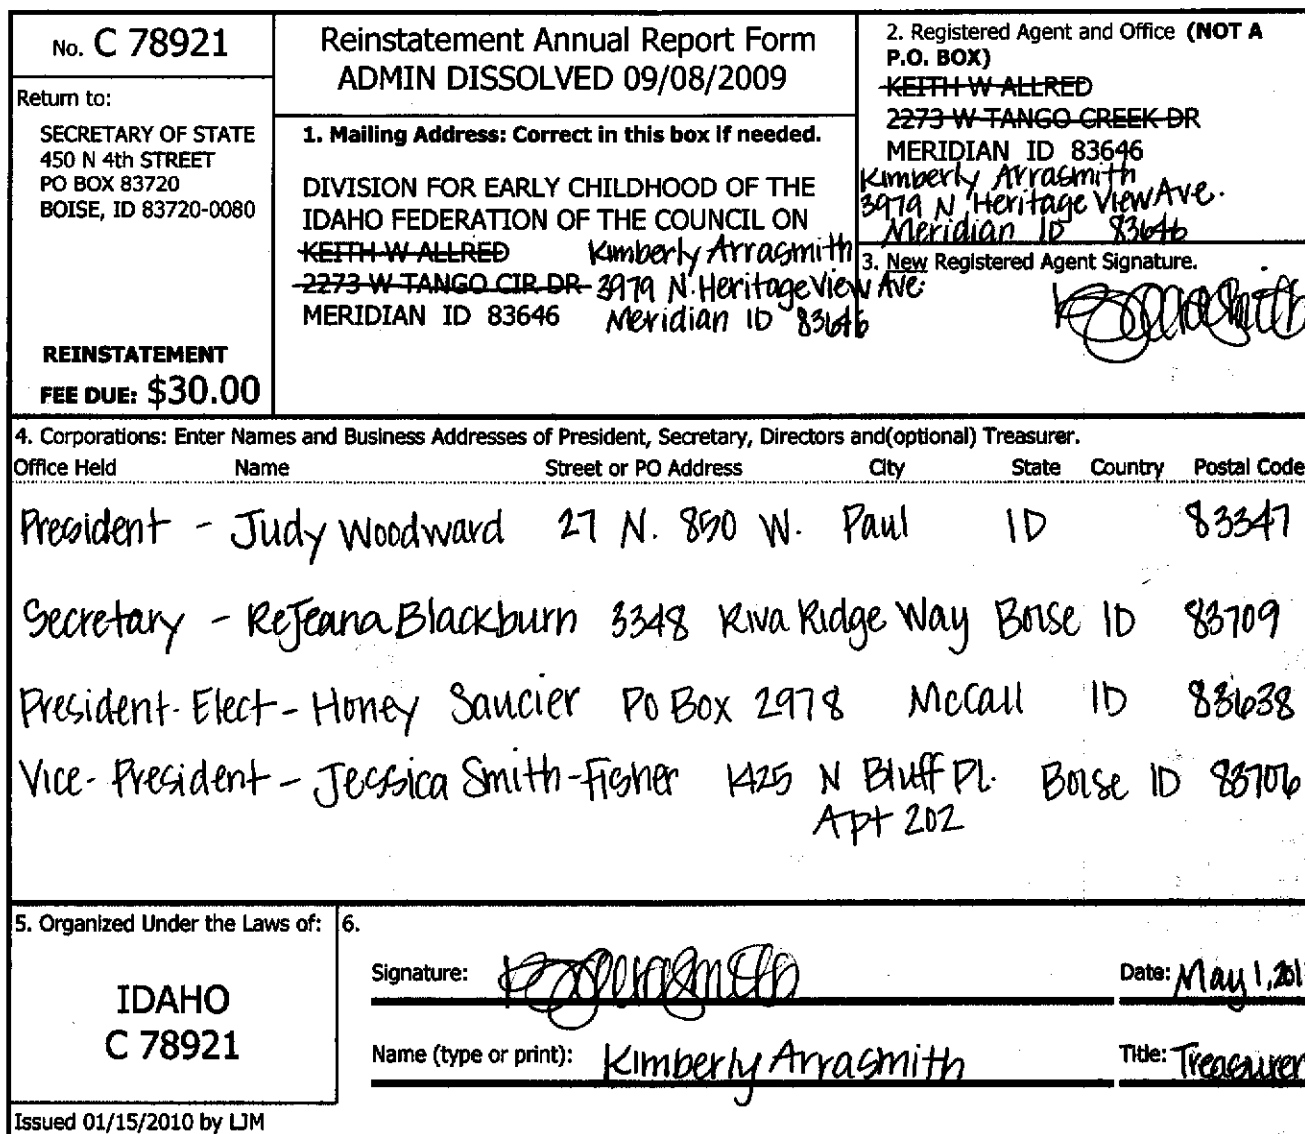 No. C 78921
Return to:
SECRETARY OF STATE
450 N 4th STREET
PO BOX 83720
BOISE, ID 83720-0080
REINSTATEMENT
FEE DUE: $30.00
Reinstatement Annual Report Form
ADMIN DISSOLVED 09/08/2009
1. Mailing Address: Correct in this box if needed.
DIVISION FOR EARLY CHILDHOOD OF THE
IDAHO FEDERATION OF THE COUNCIL ON
KEITH W ALLRED Kimberly Arrasmith
2273 W TANGO CIR DR 3979 N. Heritage View Ave.
MERIDIAN ID 83646 Meridian ID 83646
2. Registered Agent and Office (NOT A
P.O. BOX)
KEITH W ALLRED
2273 W TANGO CREEK DR
MERIDIAN ID 83646
Kimberly Arrasmith
3979 N Heritage View Ave.
Meridian ID 83646
3. New Registered Agent Signature.
4. Corporations: Enter Names and Business Addresses of President, Secretary, Directors and(optional) Treasurer.
Office Held Name Street or PO Address City State Country Postal Code
President - Judy Woodward 27 N. 850 W. Paul ID 83347
Secretary - ReJeana Blackburn 3348 Riva Ridge Way Boise ID 83709
President-Elect - Honey Saucier PO Box 2978 McCall ID 83638
Vice-President - Jessica Smith-Fisher 1425 N Bluff Pl. Boise ID 83706
Apt 202
5. Organized Under the Laws of:
IDAHO
C 78921
6.
Signature:
Date: May 1, 201
Name (type or print): Kimberly Arrasmith
Title: Treasurer
Issued 01/15/2010 by LJM